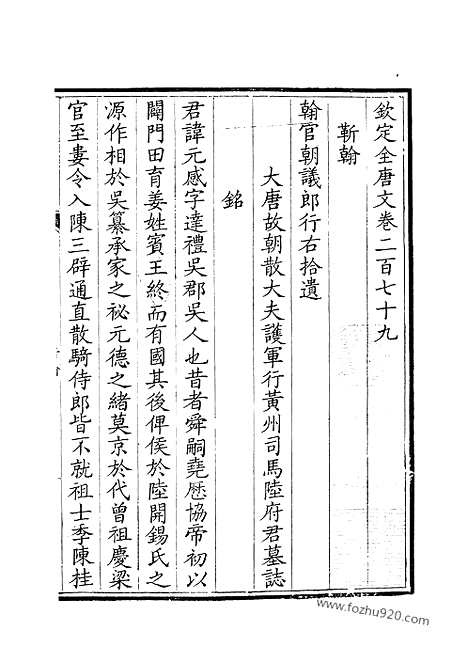 欽定全唐文卷二百七十九
靳翰
翰官朝議郎行右拾遺
大唐故朝散大夫護軍行黃州司馬陸府君墓誌
銘
君諱元感字達禮吳郡吳人也昔者舜嗣堯歷協帝初以
闢門田育姜姓賓王終而有國其後俾侯於陸開錫氏之
源作相於吳纂承家之祕元德之緒莫京於代曾祖慶梁
官至婁令入陳三辟通直散騎侍郎皆不就祖士季陳桂
www.fozhu920.com